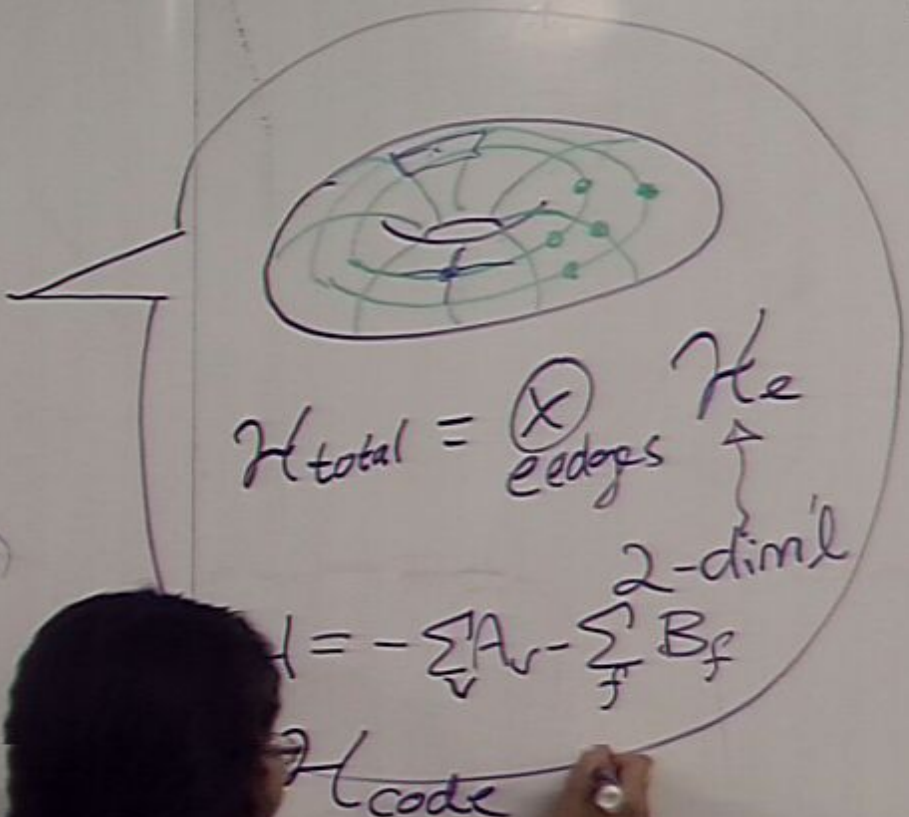 ℋ_total = ⊗_{e∈edges} ℋ_e
2-dim'l
H = -Σ_v A_v - Σ_f B_f
ℋ_code